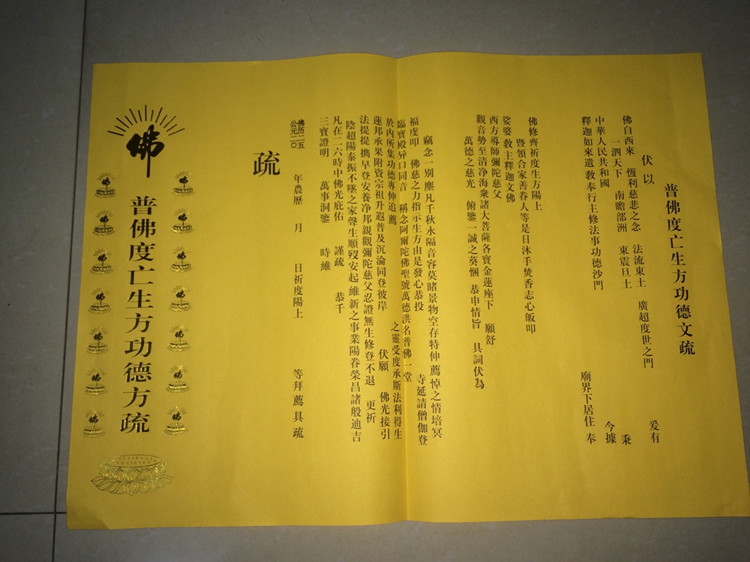 普佛度亡生方功德文疏
伏以
佛自西來 恆利慈悲之念 法流東土 廣超度世之門 爰有
一泗天下 南瞻部洲 東震旦土 秉
中華人民共和國 今據
釋迦如來遣教奉行主修法事功德沙門 廟界下居住 奉
佛修齊祈度生方陽上
暨領合家善眷人等是日沐手焚香志心皈叩
娑婆教主釋迦文佛
西方導師彌陀慈父
觀音勢至清净海衆諸大菩薩各寶金蓮座下 願舒
萬德之慈光 俯鑒一誠之葵悃 恭申情旨 具詞伏為
竊念一別塵凡千秋永隔音容莫睹景物空存特伸薦悼之情培冥
福虔叩 佛慈之力指示生方由是發心恭投 寺延請僧伽登
臨寶殿异口同音 稱念阿體陀佛聖號萬德洪名普佛一堂
於内所集功德專伸追薦 之靈受度承斯法利得生
蓮邦承果附資宗祖升退普及沉淪同登彼岸 伏願 佛光接引
法提提攜早登安養净邦親觀彌陀慈父忍證無生修登不退 更祈
陰超陽泰振不墜之家聲生順歿安起維新之事業陽眷榮昌諸般迪吉
凡在二六時中佛光庇佑 謹疏 恭干
三寶證明 萬事洞鑒 時維
疏
佛历二五
公元二〇
年農歷 月 日祈度陽上 等拜薦具疏
佛
普佛度亡生方功德方疏
佛
佛
佛
佛
佛
佛
佛
佛
佛
佛
佛
佛
佛
佛